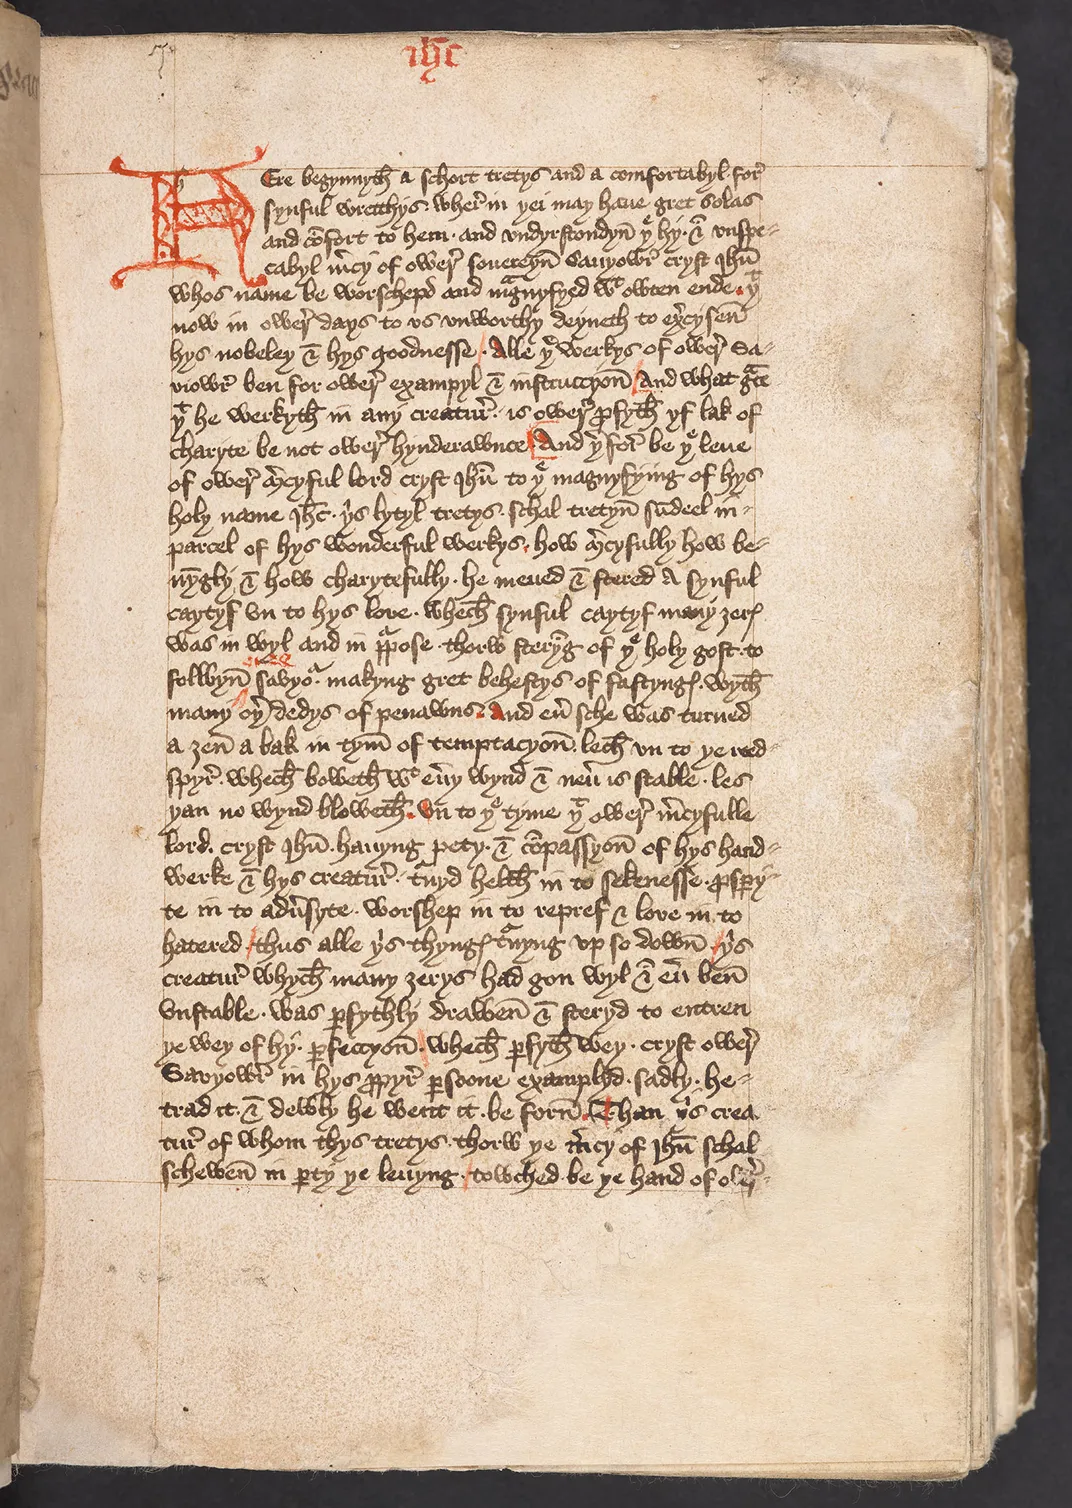 ihc
HEre begynnyth a schort tretys and a comfortabyl for
synful wrecchys. wher in yei may haue gret solas
and cōfort to hem. and vndyrstondyn yͤ hy. & vnspe=
cabyl mͬcy of ower souereyn Sauyowr cryst Ihū
whos name be worschepd and magnyfyed wͭ owten ende. yͭ
now in ower days to vs vnworthy deyneth to exͬcysen
hys nobeley & hys goodnesse. Alle yͤ werkys of ower Sa-
uiowr ben for ower exampyl & instruccyon And what gͣce
yͭ he werkyth in any creatur. is ower ꝓfyth yf lak of
charyte be not ower hynderawnce. And yͬfor be yͤ leue
of ower mͬcyful lord cryst Ihū to yͤ magnyfying of hys
holy name Ihc. yͥs lytyl tretys. schal tretyn sūdeel in=
parcel of hys wonderful werkys. how mͬcyfully how be=
nȳgly & how charytefully. he meued & stered a synful
caytyf vn to hys loue. whech synful caytyf many ȝerꝭ
was in wyl and in pͬpose. thorw steryng of yͤ holy gost. to
folwyn savyoͬ. makyng gret behestys of fastyngꝭ. wyth
many oyͬ dedys of penawns. And eūͬ sche was turned
a ȝen a bak in tym of temptacyon. lech vn to ye reed=
spyr. whech boweth wͭ euͬy wynd & neuͬ is stable. les
yan no wynd bloweth. vn to yͤ tyme yͭ ower mͬcyfulle
lord. cryst Ihū. hauyng pety. & cōpassyon of hys hand=
werke & hys creatur. tͬnyd helth in to sekenesse. ꝓspͬy=
te in to adūͬsyte. worshep in to repref & loue in to
hatered. thus alle yͥs thyngꝭ tͬnyng vp so down. yͥs
creatur whych many ȝerys had gon wyl & eūͬ ben
vnstable. was ꝑfythly drawen & steryd to entren
ye wey of hy. ꝑfeccyon. whech ꝑfyth wey. cryst ower
Savyowr in hys ꝓpyr ꝑsoone examplyd. sadly. he=
trad it. & dewly he went it. be forn. Than yͥs crea
tur of whom thys tretys. thorw ye mͬcy of Ihū schal
schewen in ꝑty ye leuyng. towched be ye hand of ower